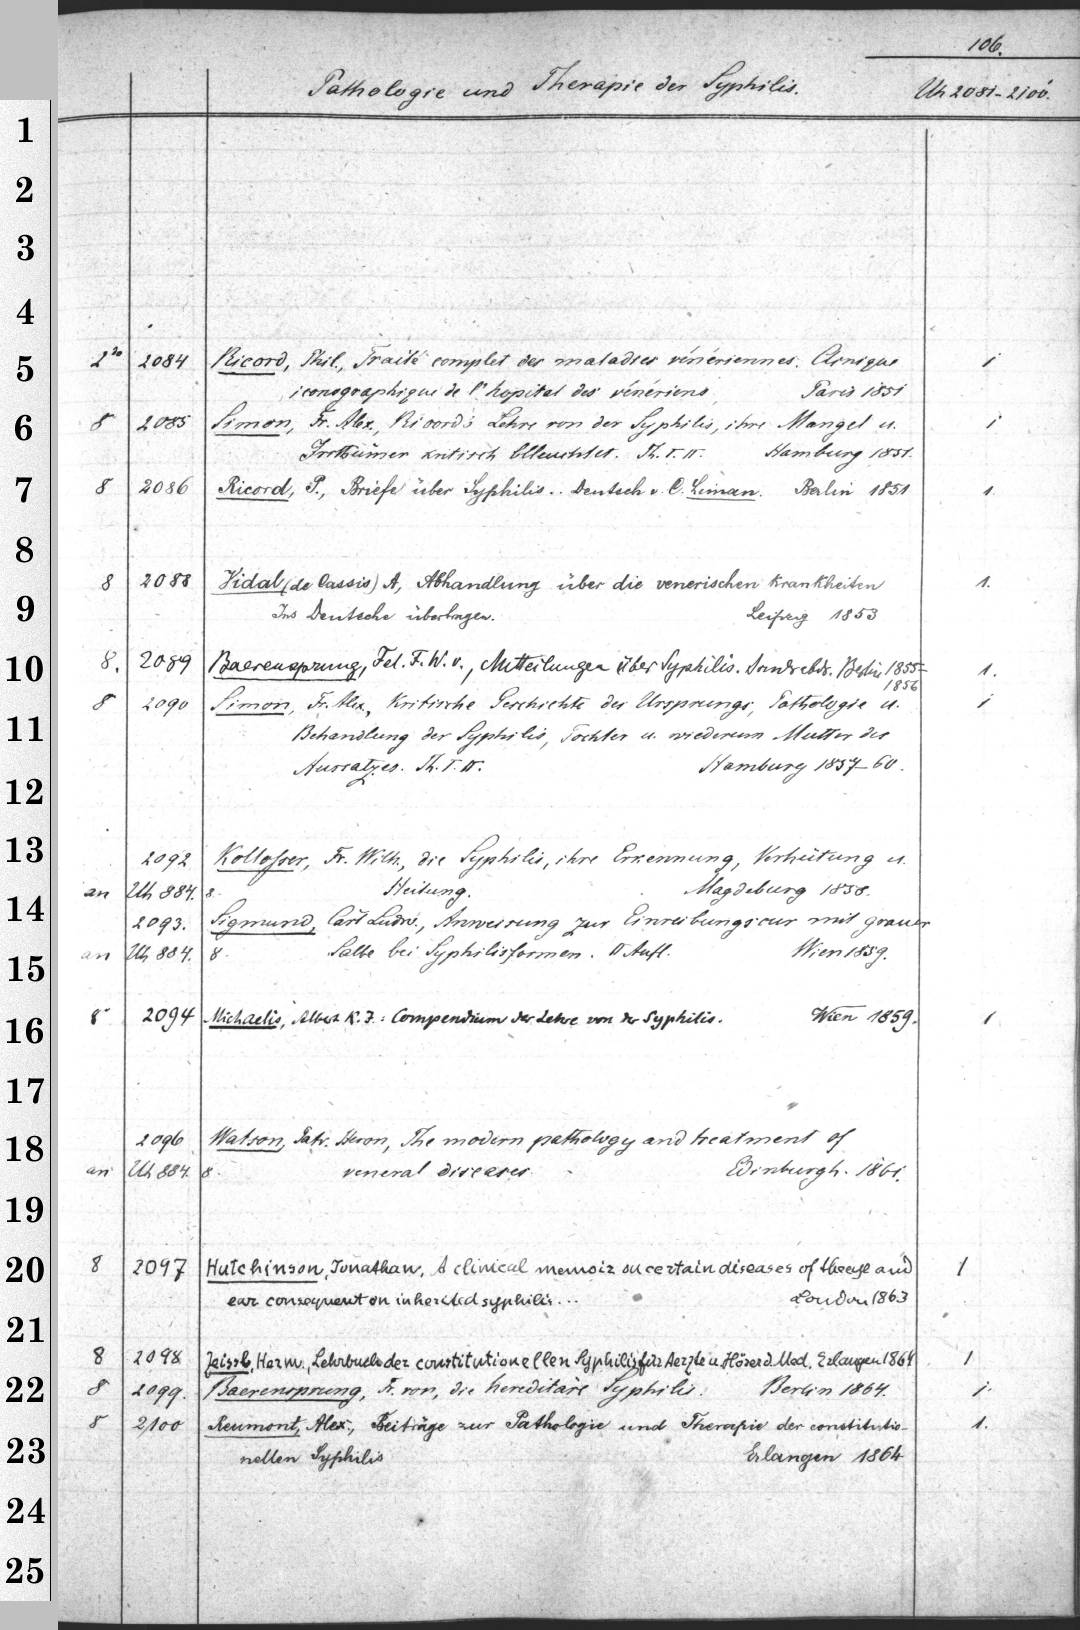 106.
Pathologie und Therapie der Syphilis. Uh 2081-2100.
1
2
3
4
5 2° 2084 Ricord, Phil., Traité complet des maladies vénériennes. Clinique 1
iconographique de l'hopital des vénériens, Paris 1851
6 8 2085 Simon, Fr. Alex., Ricord's Lehre von der Syphilis, ihre Mängel u. 1
Irrthümer kritisch beleuchtet. Th. I. II. Hamburg 1851.
7 8 2086 Ricord, P., Briefe über Syphilis.. Deutsch v. C. Liman. Berlin 1851 1.
8
8 2088 Vidal (de Cassis) A, Abhandlung über die venerischen Krankheiten 1.
9 Ins Deutsche übertragen. Leipzig 1853
10 8. 2089 Baerensprung, Fel. F. W. v., Mitteilungen über Syphilis. Berlin 1855- 1.
1856
8 2090 Simon, Fr. Alex., Kritische Geschichte des Ursprungs, Pathologie u. 1
11 Behandlung der Syphilis, Tochter u. wiederum Mutter des
Aussatzes. Th. I. II. Hamburg 1857-60.
12
13 2092 Fr. Wilh., die Syphilis, ihre Erkennung, Verhütung u.
an Uh 884. 8. Heilung. Magdeburg 1858.
14 2093. Sigmund, Carl Ludw., Anweisung zur Einreibungscur mit grauer
15 an Uh 884. 8. Salbe bei Syphilisformen. II Aufl. Wien 1859.
16 8 2094 Michaelis, Albert K. J.: Compendium der Lehre von der Syphilis. Wien 1859. 1
17
18 2096 Watson, Patr. Heron, The modern pathology and treatment of
an Uh 884. 8. veneral diseases Edinburgh. 1861.
19
20 8 2097 Hutchinson, Jonathan, A clinical memoir on certain diseases of the eye and 1
ear consequent on inherited syphilis... London 1863
21
8 2098 Zeissl, Herm., Lehrbuch der constitutionellen Syphilis für Aerzte u. Hörer d. Med. Erlangen 1864 1
22 8 2099. Baerensprung, F. von, die hereditäre Syphilis. Berlin 1864. 1.
8 2100 Reumont, Alex., Beiträge zur Pathologie und Therapie der constitutio- 1.
23 nellen Syphilis Erlangen 1864
24
25